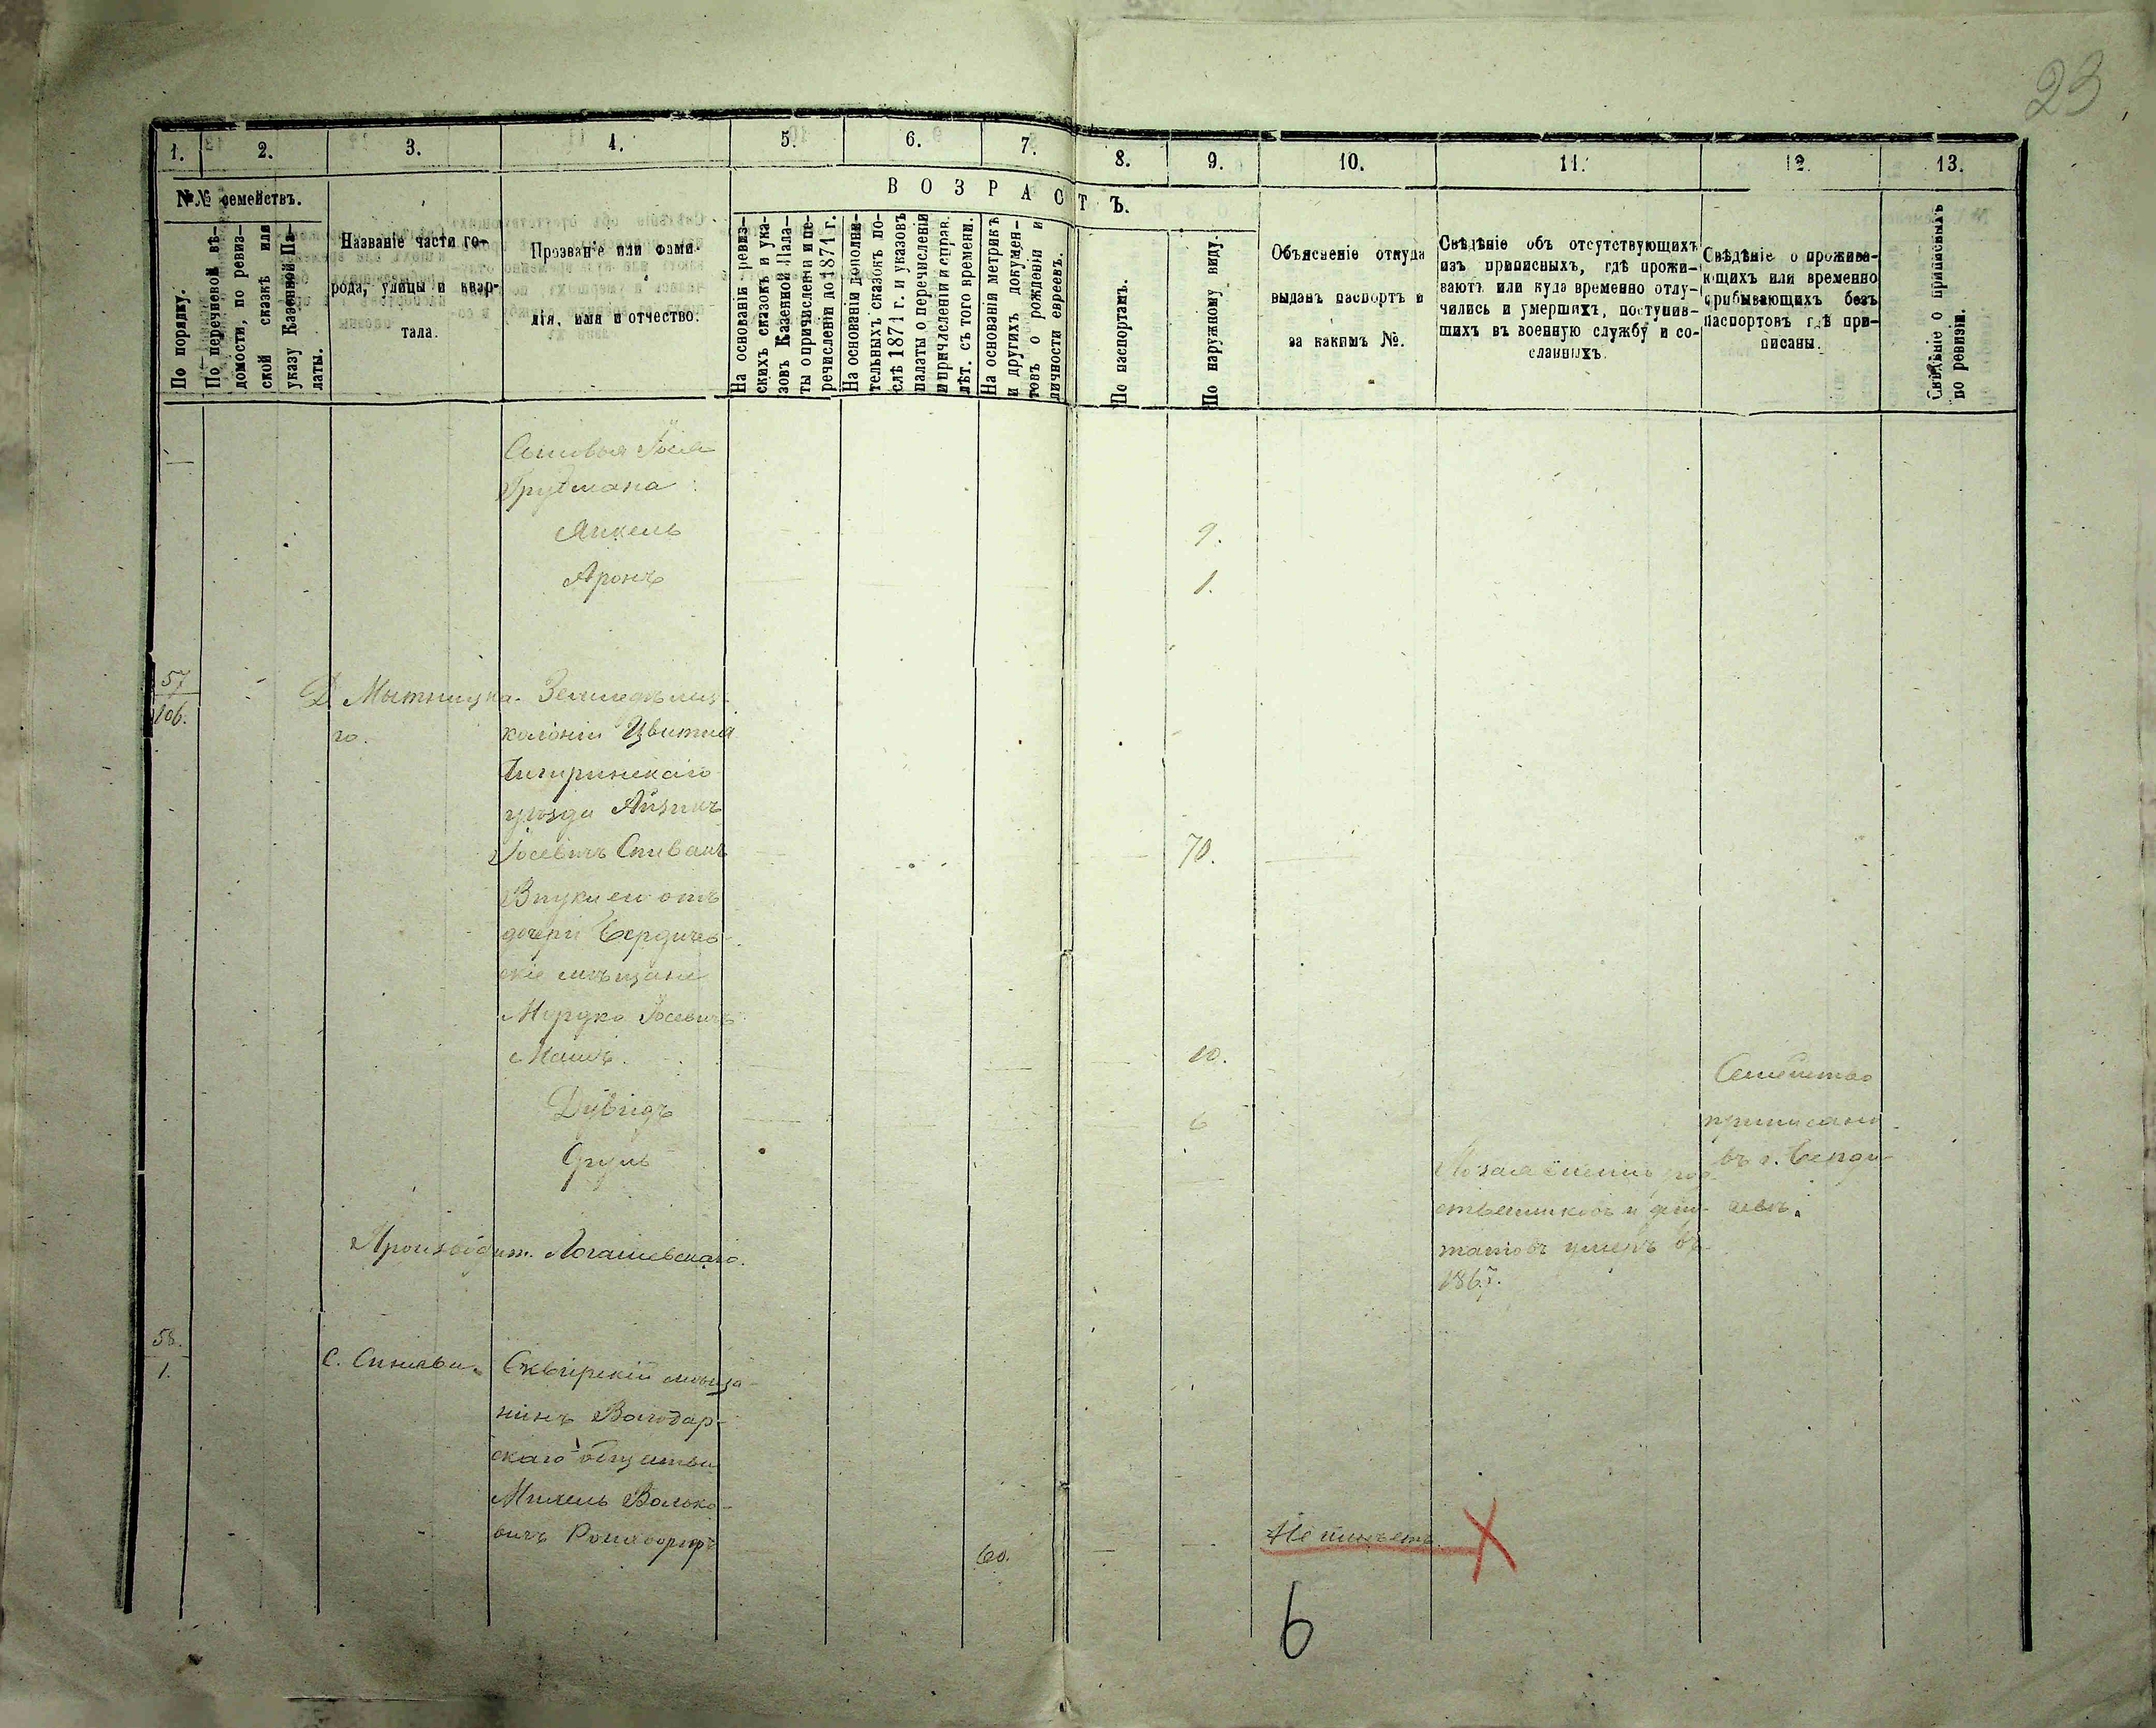 23
1. 2. 3. 4. 5. 6. 7. 8. 9. 10. 11. 12. 13.
№№ семействъ.
ВОЗРАСТЪ.
По порядку.
По перечневой вѣ-
домости, по ревиз-
ской сказкѣ или
указу Казенной Па-
латы.
Названіе части го-
рода, улицы и квар-
тала.
Прозваніе или фами-
лія, имя и отчество.
На основаніи ревиз-
скихъ сказокъ и ука-
зовъ Казенной Пала-
ты о причисленіи и пе-
речисленіи до 1871 г.
На основаніи дополни-
тельныхъ сказокъ по-
слѣ 1871 г. и указовъ
палаты о перечисленіи
и причисленіи и справ.
лѣт. съ того времени.
На основаніи метрикъ
и другихъ докумен-
товъ о рожденіи и
личности евреевъ.
По паспортамъ.
По наружному виду.
Объясненіе откуда
выданъ паспортъ и
за какимъ №.
Свѣдѣніе объ отсутствующихъ
изъ приписныхъ, гдѣ прожи-
ваютъ или куда временно отлу-
чились и умершихъ, поступив-
шихъ въ военную службу и со-
сланныхъ.
Свѣдѣніе о прожива-
ющихъ или временно
прибывающихъ безъ
паспортовъ гдѣ при-
писаны.
Свѣдѣніе о приписныхъ
по ревизіи.
Сыновья Іося
Грузмана:
Янкель 9.
Аронъ 1.
57
106.
Д. Мытницка-
го.
колоніи Цвитна
Чигиринскаго
уѣзда Айзикъ
Іосевичъ Спивакъ 70.
Внуки его отъ
дочери Бердичев-
скіе мѣщане
Мордко Іосевичъ
10.
Дувидъ 6
Сруль
Семейство
приписано
въ г. Берди-
чевѣ.
ственниковъ и
умеръ въ
1867.
58.
1.
С. Синява.
Сквирскій мѣща-
нинъ Володар-
скаго общества
МихельВолько-
вичъ 60.
Не имѣетъ.
6